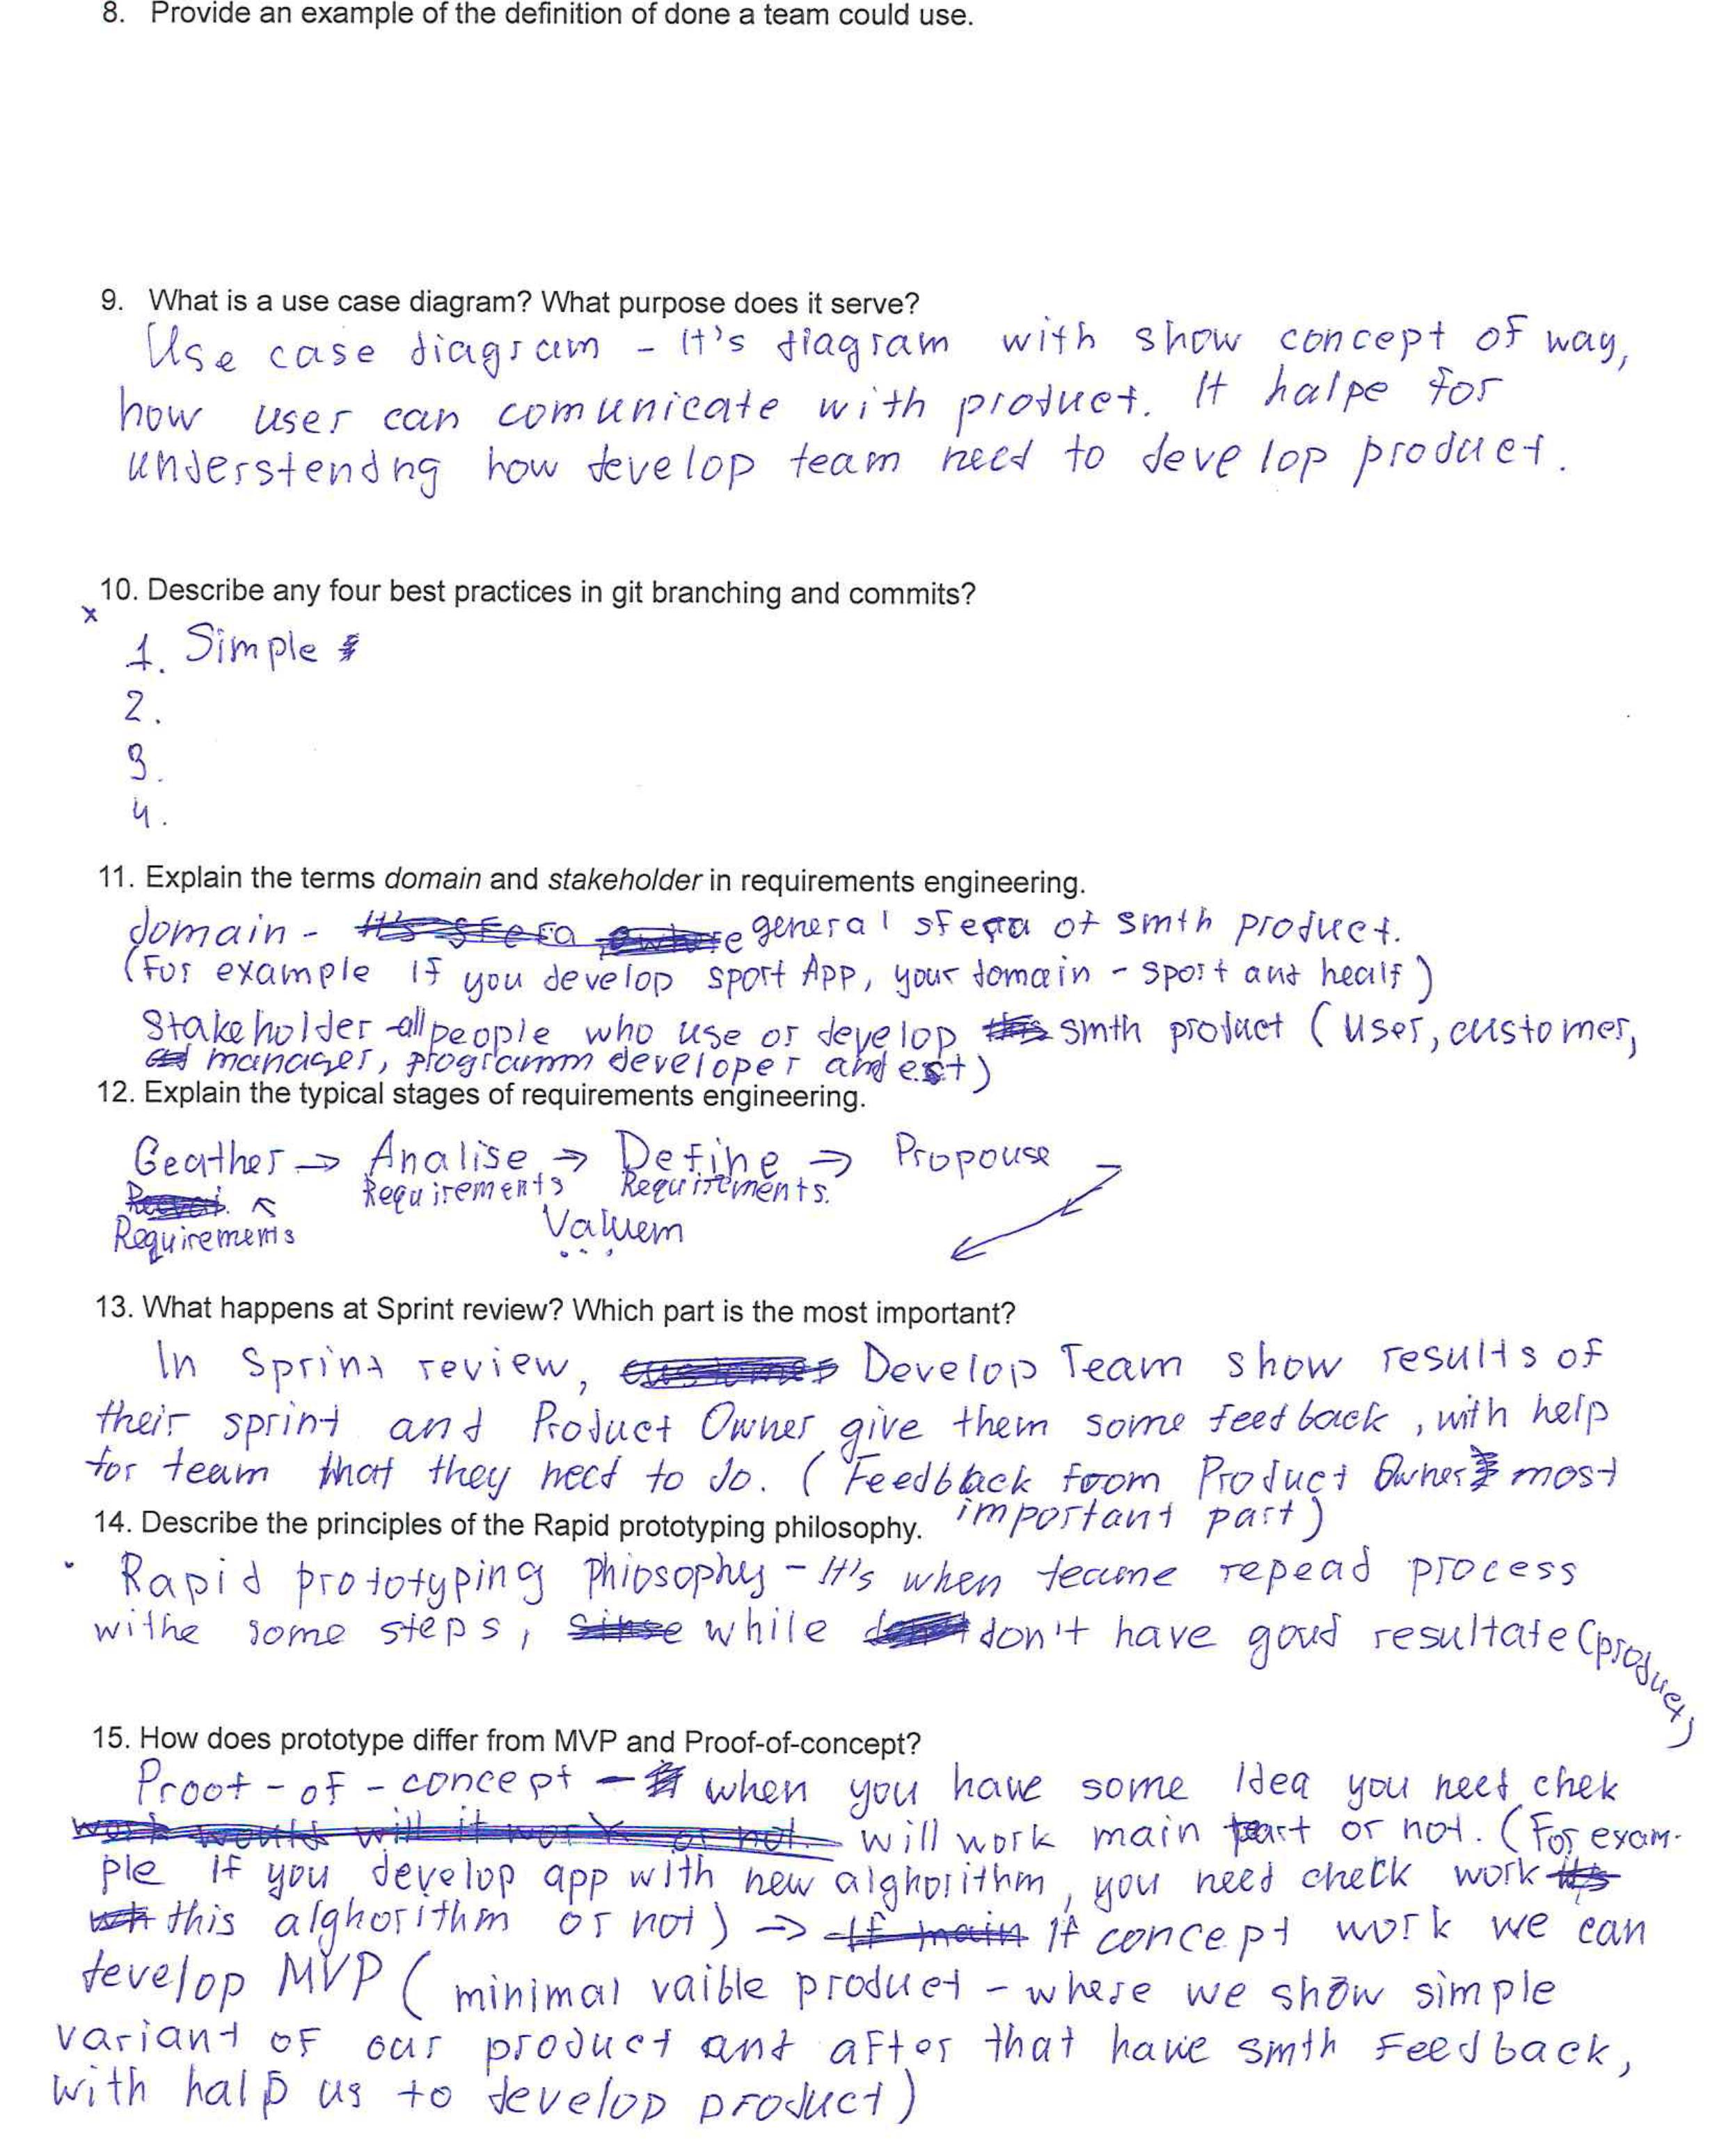 8. Provide an example of the definition of done a team could use.
9. What is a use case diagram? What purpose does it serve?
Use case diagram - It's diagram with show concept of way,
how user can comunicate with product. It halpe for
understendng how develop team need to develop product.
10. Describe any four best practices in git branching and commits?
x
1. Simple
2.
3.
4.
11. Explain the terms domain and stakeholder in requirements engineering.
domain - general sfera of smth product.
(For example if you develop sport App, your domain - sport and healf)
Stakeholder - all people who use or develop smth product (user, customer,
manager, programm developer and est)
12. Explain the typical stages of requirements engineering.
Geather → Analise → Define → Propouse
Requirements Requirements.
Requirements
13. What happens at Sprint review? Which part is the most important?
In Sprint review, Develop Team show results of
their sprint and Product Owner give them some feedback, with help
for team that they need to do. (Feedback from Product Owner most
important part)
14. Describe the principles of the Rapid prototyping philosophy.
Rapid prototyping phiosophy - It's when teame repead process
withe some steps, while don't have goud resultate (product)
15. How does prototype differ from MVP and Proof-of-concept?
Proof-of-concept - when you have some Idea you need chek
will work main part or not. (For exam-
ple if you develop app with new alghorithm, you need check work
this alghorithm or not) → if concept work we can
develop MVP (minimal vaible product - where we show simple
variant of our product and after that have smth Feedback,
with halp us to develop product)